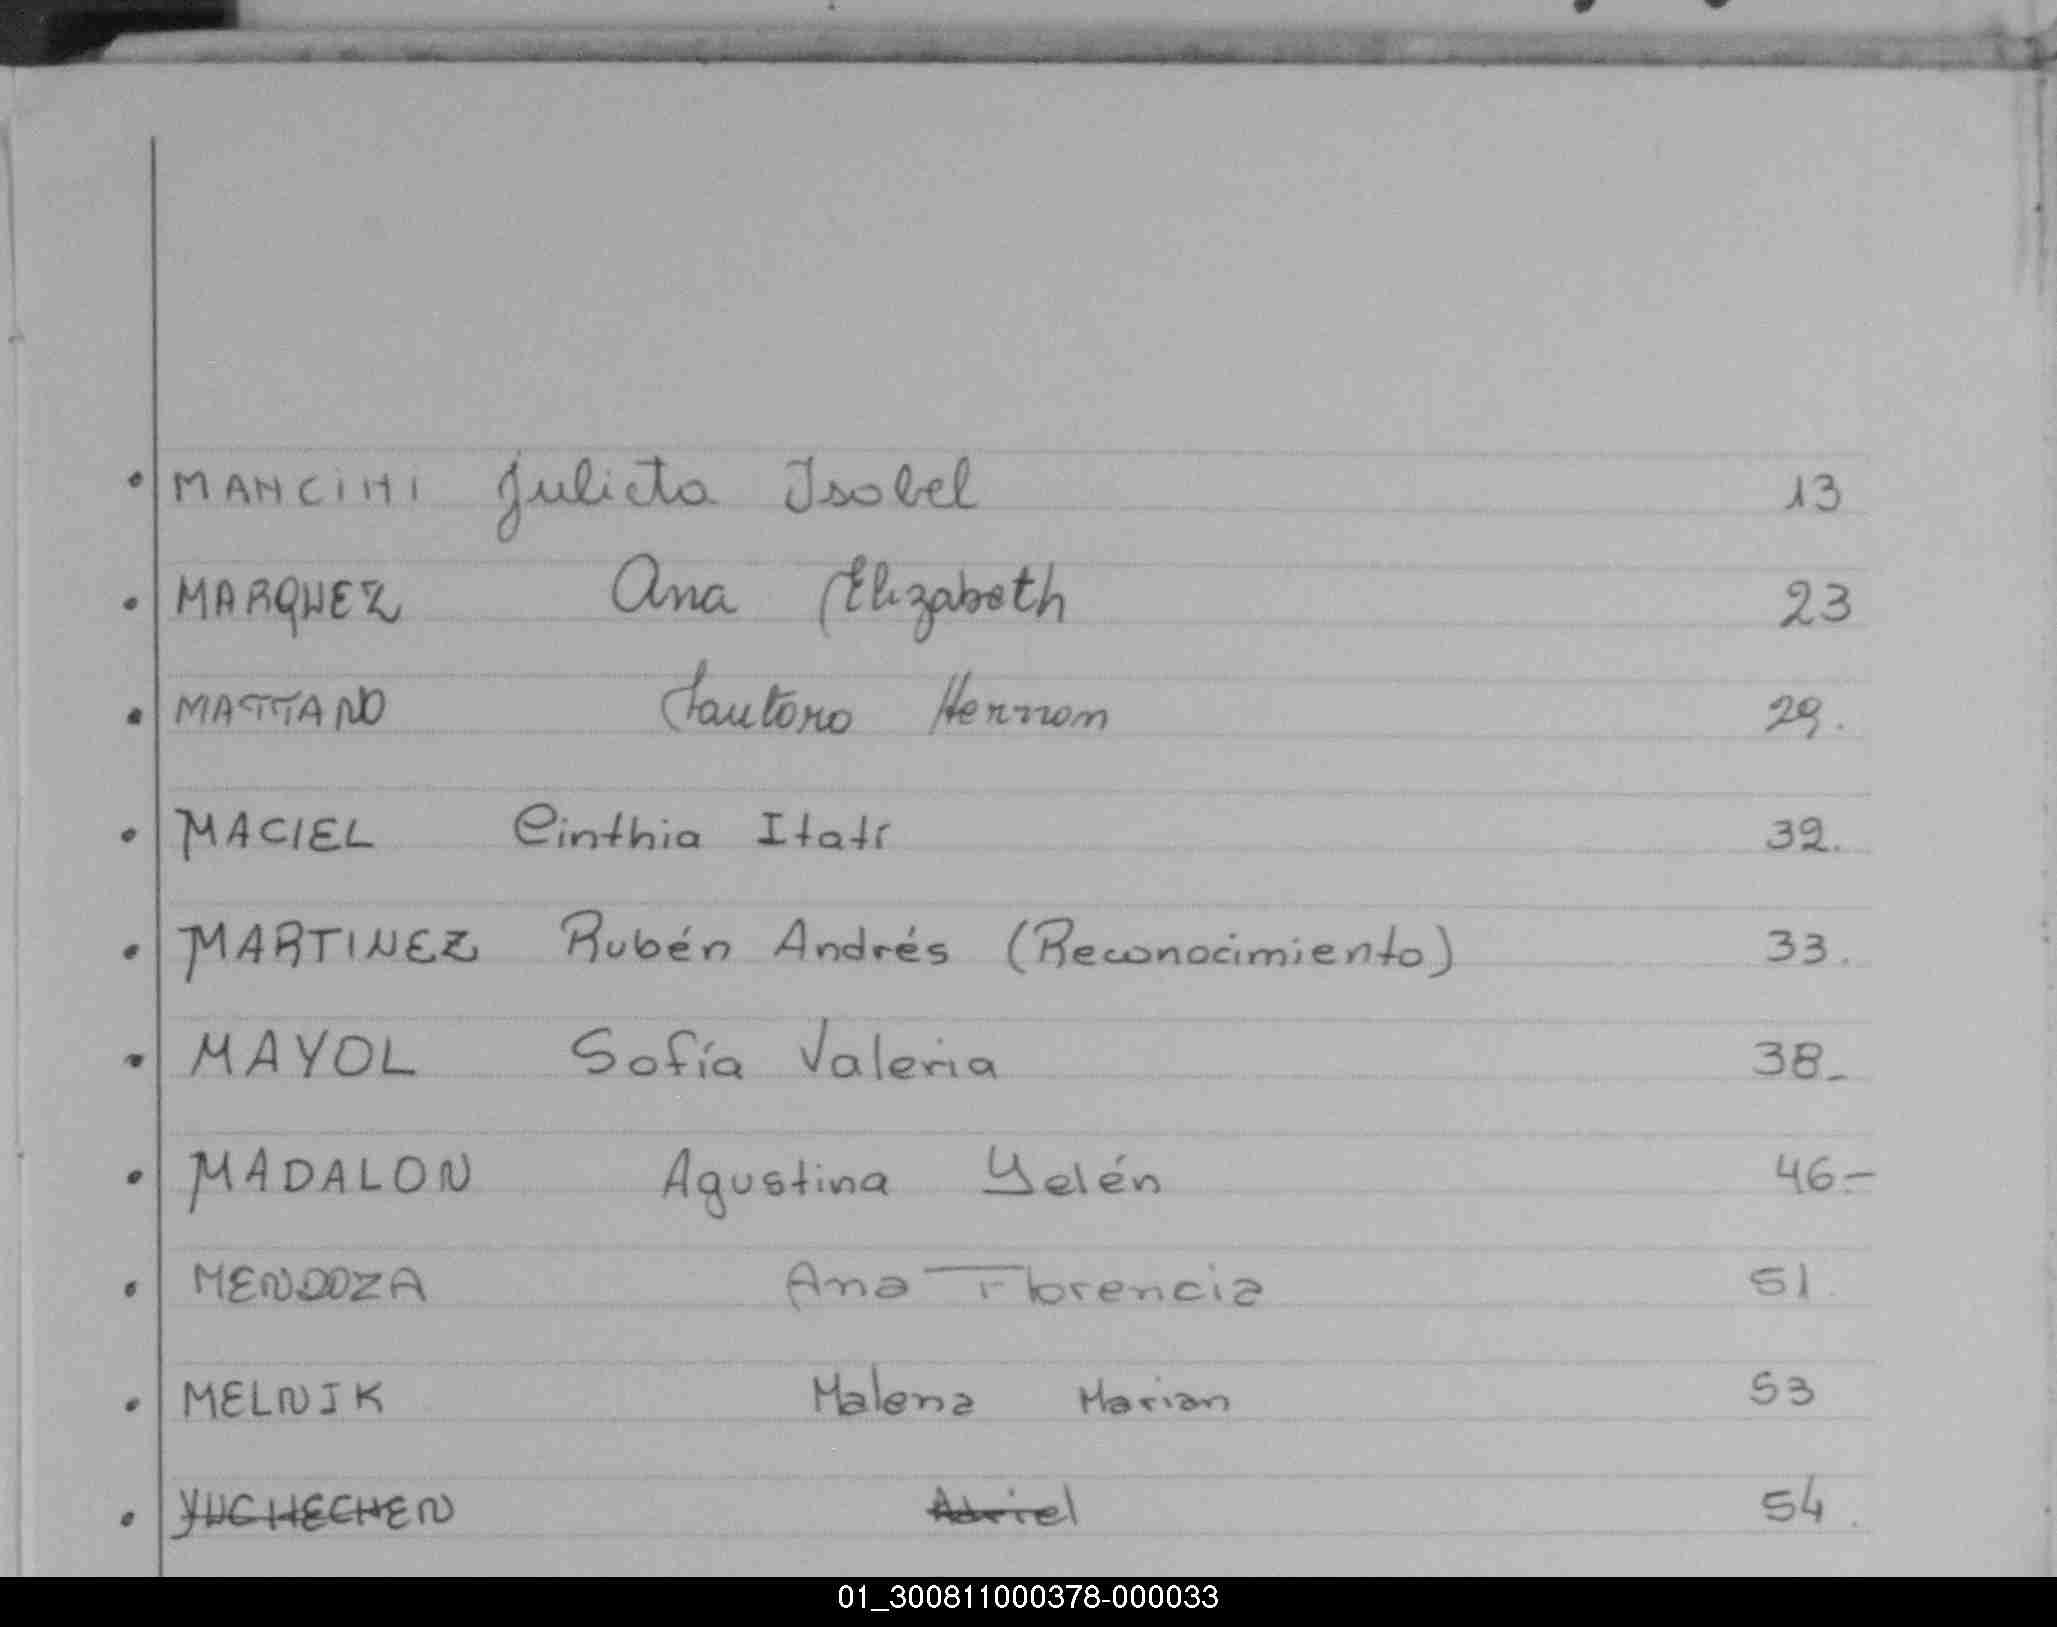 MANCINI Julieta Isabel 13
MARQUEZ Ana Elizabeth 23
MATTANO Lautaro Hernan 29.
MACIEL Cinthia Itatí 32.
MARTINEZ Rubén Andrés (Reconocimiento) 33.
MAYOL Sofía Valeria 38-
MADALON Agustina Yelén 46.-
MENDOZA Ana Florencia 51.
MELNIK Malena Marian 53
YUCHECHEN 54.
01_300811000378-000033